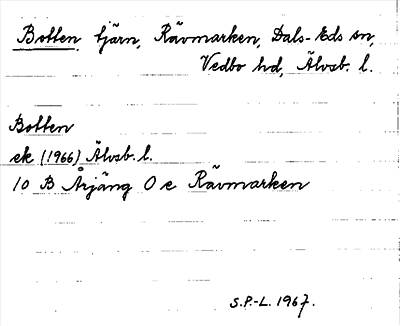 Botten, tjärn, Rävmarken, Dals-Eds sn,
Vedbo hd, Älvsb. l.
Botten
ek (1966) Älvsb. l.
10 B Årjäng O e Rävmarken
S.P.-L. 1967.